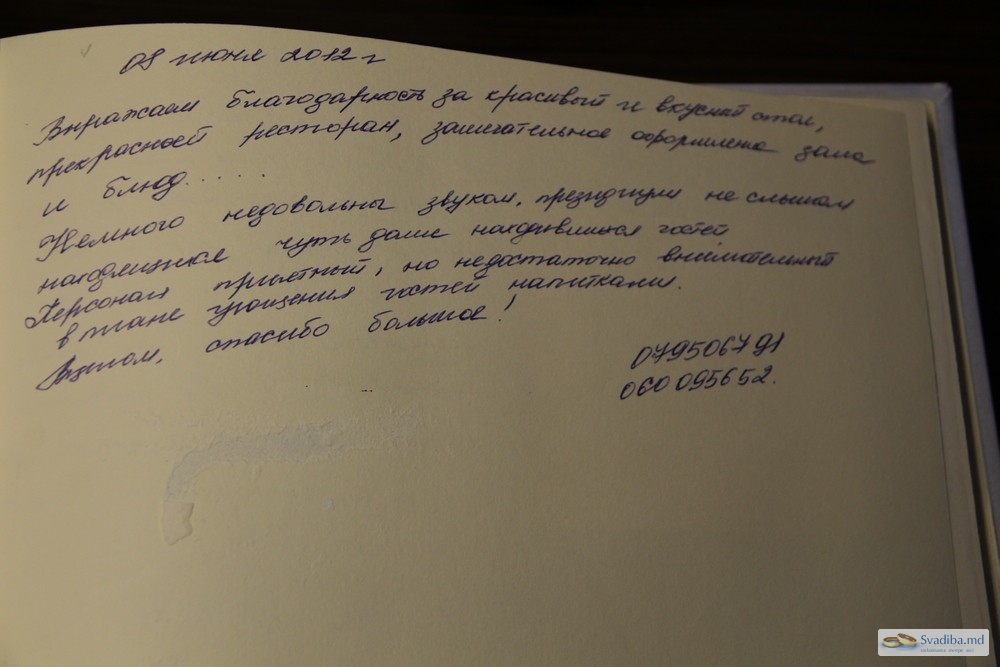 09 июня 2012 г
Выражаем благодарность за красивый и вкусный стол,
прекрасный ресторан, замечательное оформление зала
и блюд.....
Немного недовольны звуком, президиум не слышал
находящихся чуть далее находившихся гостей
Персонал приятный, но недостаточно внимательный
в плане угощения гостей напитками.
В целом, спасибо большое!
079506791
060095652.
Svadiba.md